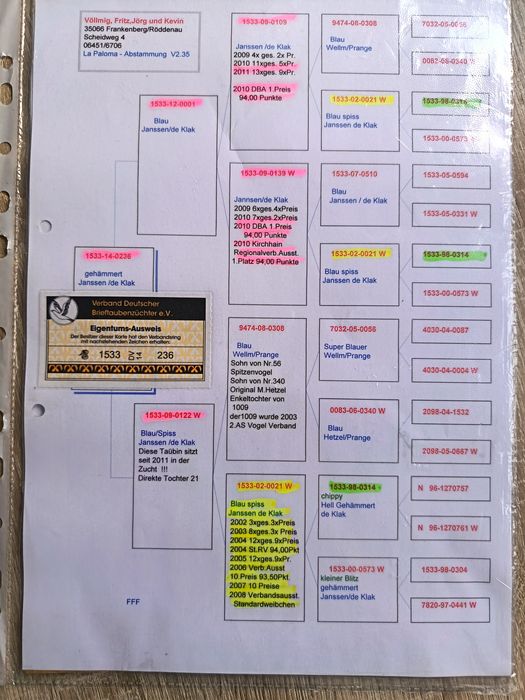 Völlmig, Fritz,Jörg und Kevin
35066 Frankenberg/Röddenau
Scheidweg 4
06451/6706
La Paloma - Abstammung V2.35
1533-12-0001
Blau
Janssen/de Klak
1533-14-0236
gehämmert
Janssen /de Klak
Verband Deutscher
Brieftaubenzüchter e.V.
Eigentums-Ausweis
Der Besitzer dieser Karte hat den Verbandsring
mit nachstehenden Zeichen erhalten:
1533 DV 14 236
1533-09-0122 W
Blau/Spiss
Janssen /de Klak
Diese Taübin sitzt
seit 2011 in der
Zucht !!!
Direkte Tochter 21
FFF
1533-08-0109
Janssen /de Klak
2009 4x ges. 2x Pr.
2010 11xges. 5xPr.
2011 13xges. 9xPr.
2010 DBA 1.Preis
94,00 Punkte
1533-09-0139 W
Jannsen/de Klak
2009 6xges.4xPreis
2010 7xges.2xPreis
2010 DBA 1.Preis
94,00 Punkte
2010 Kirchhain
Regionalverb.Ausst.
1.Platz 94,00 Punkte
9474-08-0308
Blau
Wellm/Prange
Sohn von Nr.56
Spitzenvogel
Sohn von Nr.340
Original M.Hetzel
Enkeltochter von
1009
der1009 wurde 2003
2.AS Vogel Verband
1533-02-0021 W
Blau spiss
Janssen de Klak
2002 3xges.3xPreis
2003 8xges.3x Preis
2004 12xges.9xPreis
2004 SLRV 94,00Pkt
2005 12xges.9xPr.
2006 Verb.Ausst
10.Preis 93,50Pkt.
2007 10 Preise
2008 Verbandsausst.
Standardweibchen
9474-08-0308
Blau
Wellm/Prange
1533-02-0021 W
Blau spiss
Janssen de Klak
1533-07-0510
Blau
Janssen / de Klak
1533-02-0021 W
Blau spiss
Janssen de Klak
7032-05-0056
Super Blauer
Wellm/Prange
0083-06-0340 W
Blau
Hetzel/Prange
1533-98-0314
chippy
Hell Gehämmert
de Klak
1533-00-0573 W
kleiner Blitz
gehämmert
Janssen/de Klak
7032-05-0056
1533-00-0573
1533-05-0594
1533-05-0331 W
1533-98-0314
1533-00-0573 W
4030-04-0087
4030-04-0004 W
2098-04-1532
2098-05-0667 W
N 96-1270757
N 96-1270761 W
1533-98-0304
7820-97-0441 W